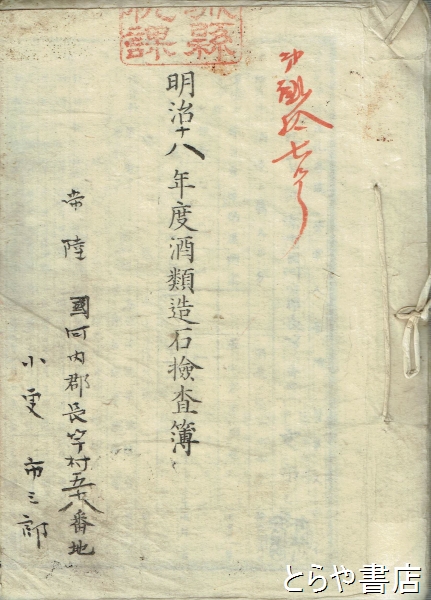 第貳拾七号
縣
税課
明治十八年度酒類造石檢査簿
常陸國河内郡長竿村五十八番地
小更市三郎
とらや書店